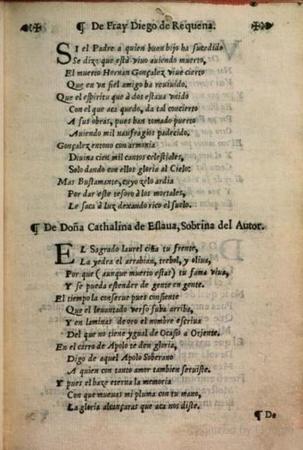 ¶ De Fray Diego de Requena.
SI el Padre a quien buen hijo ha sucedido
Se dize que està viuo auiendo muerto,
El muerto Hernan Gonçalez viue cierto
Que en vn fiel amigo ha reuiuido,
Que el espiritu que à dos estaua vnido
Con el que aca quedo, da tal concierto
A sus obras, pues han tomado puerto
Auiendo mil naufragios padecido.
Gonçalez entono con armonia
Diuina cien mil cantos celestiales,
Solo dando con ellos gloria al Cielo:
Mas Bustamante, cuyo zelo ardia
Por dar este tesoro à los mortales,
Le saca à luz dexando rico el suelo.
¶ De Doña Cathalina de Eslaua, Sobrina del Autor.
EL Sagrado laurel ciña tu frente,
La yedra el arrabian, trebol, y oliua,
Por que (aunque muerto estas) tu fama viua,
Y se pueda estender de gente en gente.
El tiempo la conserue pues consiente
Que el leuantado verso suba arriba,
Y en laminas de oro el nombre escriua
Del que no tiene ygual de Ocaso à Oriente.
En el cerro de Apolo te den gloria,
Digo de aquel Apolo Soberano
A quien con tanto amor tambien seruiste.
Y pues el haze eterna la memoria
Con que mueuas mi pluma con tu mano,
La gloria alcançaras que acà nos diste.
¶ De